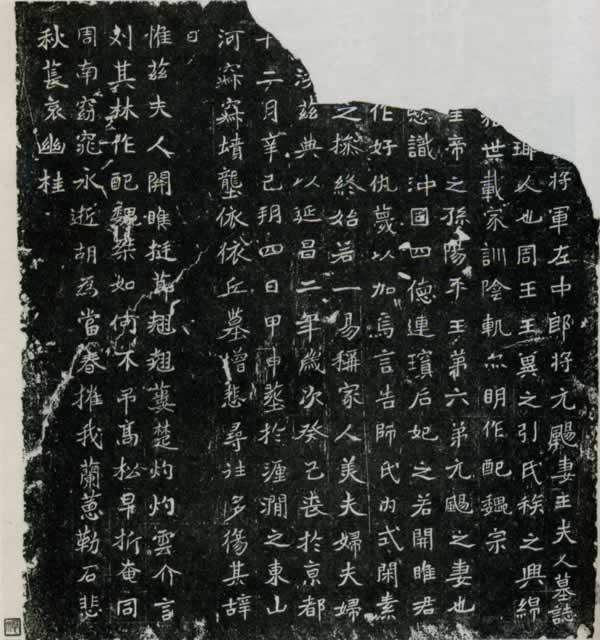 將軍左中郎將元颺妻王夫人墓誌
人也周王王異之引氏族之興綿
世載家訓陰軌尒明作配魏宗
皇帝之孫陽平王第六弟元颺之妻也
志識沖固四德連璸后妃之若關雎君
作好仇蔑以加焉言告師氏內式閑素
之操終始若一易稱家人美夫婦夫婦
茲典以延昌二年歲次癸巳喪於京都
十二月辛巳朔四日甲申葬於瀍澗之東山
河寂寂墳壟依依丘墓增悲尋往多傷其辞
曰
惟茲夫人關雎挺節翹翹蔞楚灼灼雲介言
刘其林作配魏桀如何不弔高松早折奄同
周南窈窕永逝胡為當春摧我蘭蕙勒石悲
秋萇哀幽桂